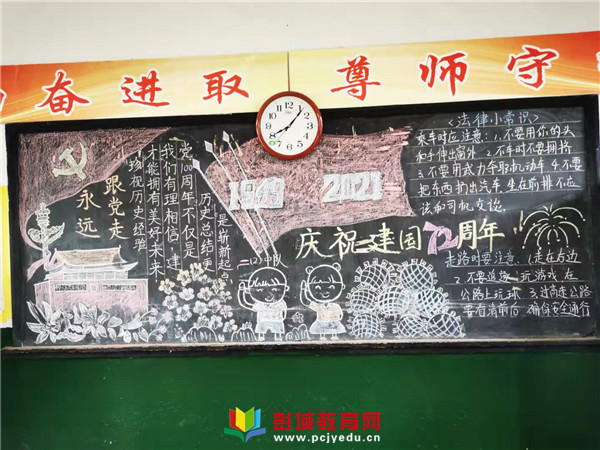 奋进取 尊师守
永远
跟党走
珍视历史经验
才能拥有美好未来
我们有理相信,建
党100周年不仅是
历史总结更
是崭新起
1949 2021
庆祝建国72周年
二(2)中队
《法律小常识》
乘车时应注意:1.不要用你的头
和手伸出窗外 2.不车时不要拥挤
3.不要用武力争取机动车 4.不要
把东西扔出汽车 坐在前排不应
该和司机交谈
走路时要注意:1.走在右边
2.不要追逐 玩游戏 在
公路上玩球 3.过高走公路
要看清前后 确保安全通行
彭城教育网
www.pcjyedu.cn